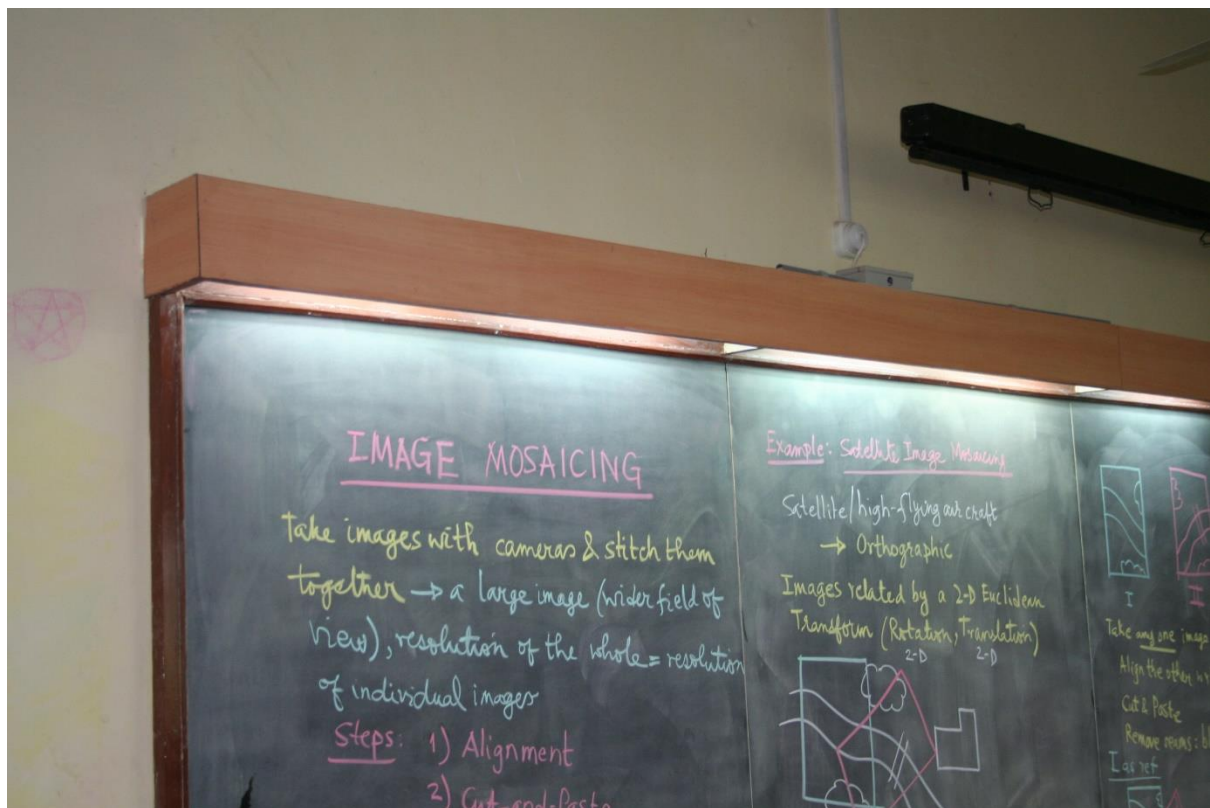 IMAGE MOSAICING
Take images with cameras & stitch them
together → a large image (wider field of
view), resolution of the whole = resolution
of individual images
Steps: 1) Alignment
2) Cut-and-Paste
Example: Satellite Image Mosaicing
Satellite/high-flying aircraft
→ Orthographic
Images related by a 2-D Euclidean
Transform (Rotation, Translation)
2-D 2-D
I II
Take any one image
Align the other
Cut & Paste
Remove seams:
I as ref